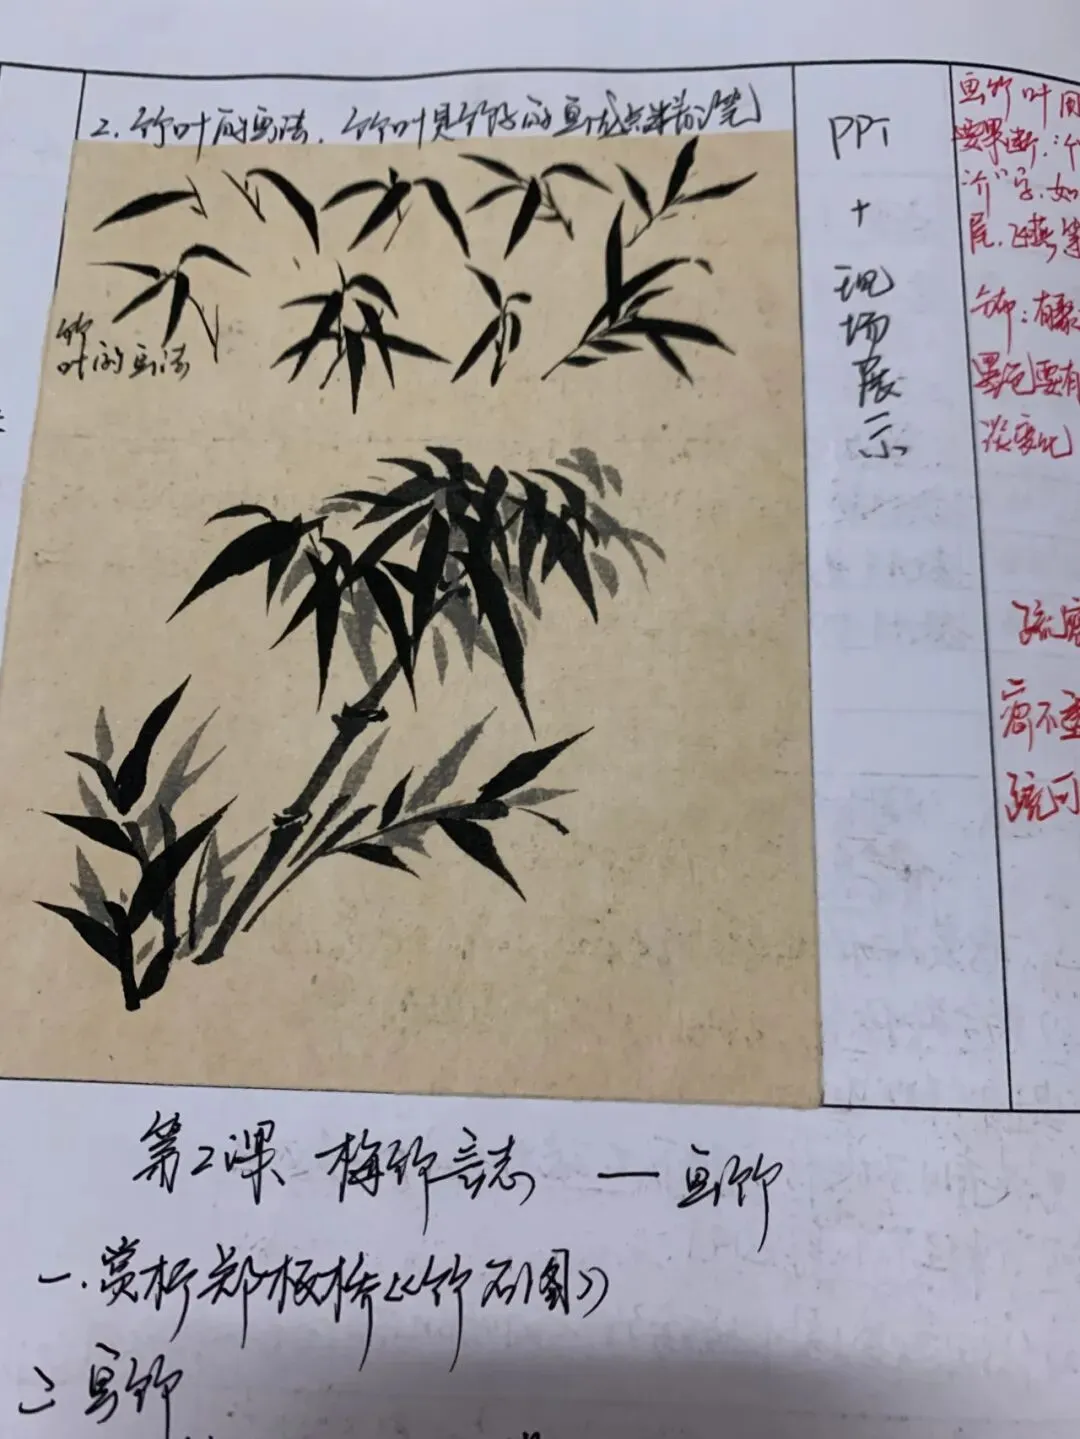 2. 竹叶的画法. 竹叶是竹子的画法
竹
叶的画法
PPT
+
现
场
展
示
画竹叶用
要果断.
"介"字.如
尾.飞燕等
分布:有聚
墨色要有
淡变化
疏
密不
疏可
第2课 梅竹言志 — 画竹
一.赏析郑板桥《竹石图》
二 画竹